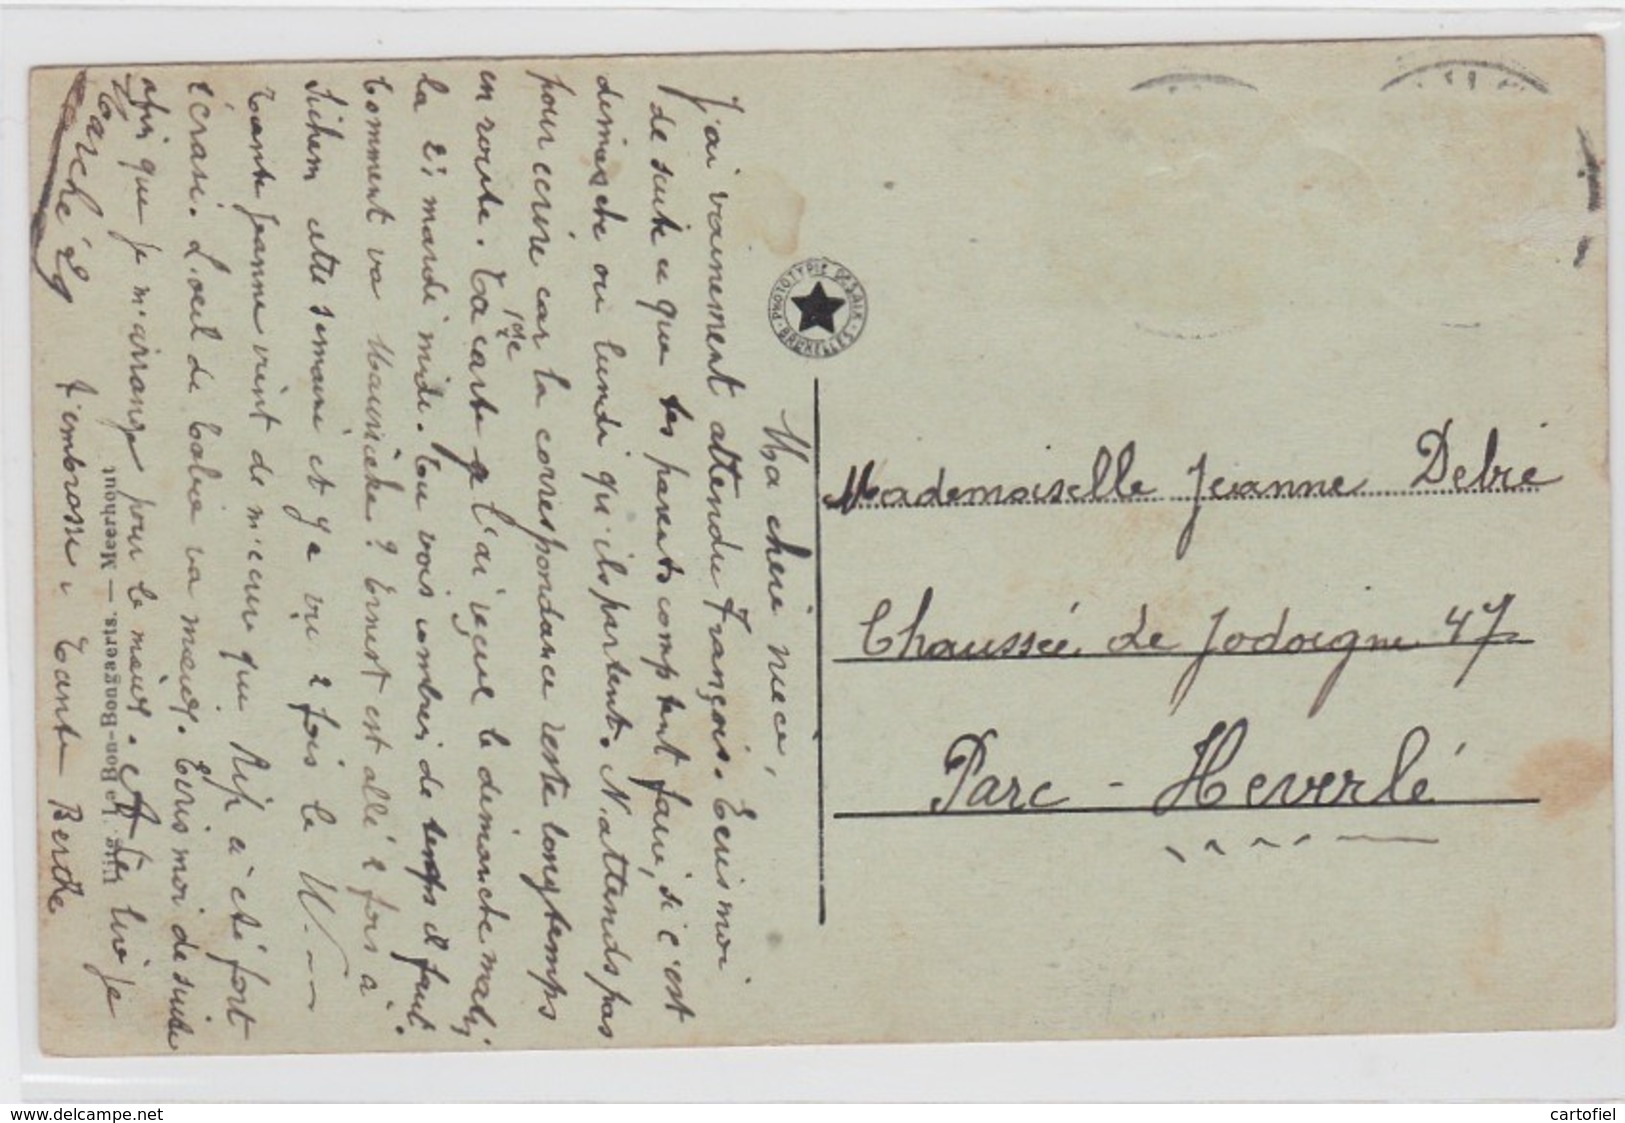 Ma chère nièce,
J'ai vainement attendu François. Ecris moi
de suite ce que tes parents comptent faire, si c'est
dimanche ou lundi qu'ils partent. N'attends pas
pour ecrire car la correspondance reste longtemps
en route. Ta carte je l'ai reçue le dimanche mat,
1ère
la 2e mardi midi. Tu vois combien de temps il faut.
Comment va Maurieke? Ernest est allé 2 fois à
Sichem cette semaine et y a vu 2 fois le W. - - -
Tante Jeanne vient de m'ecrire que Rip a été fort
écrasé. L'oeil de va mieux. Ecris moi de suite
afin que je m'arrange pour le mieux.
Tante Berthe
t'embrasse.
Uitg. Bon-Bongaerts. — Meerhout
PHOTOTYPIE DESAIX · BRUXELLES ·
Mademoiselle Jeanne Debré
Chaussée de Jodoigne 47
Parc - Heverlé
www.delcampe.net
cartofiel